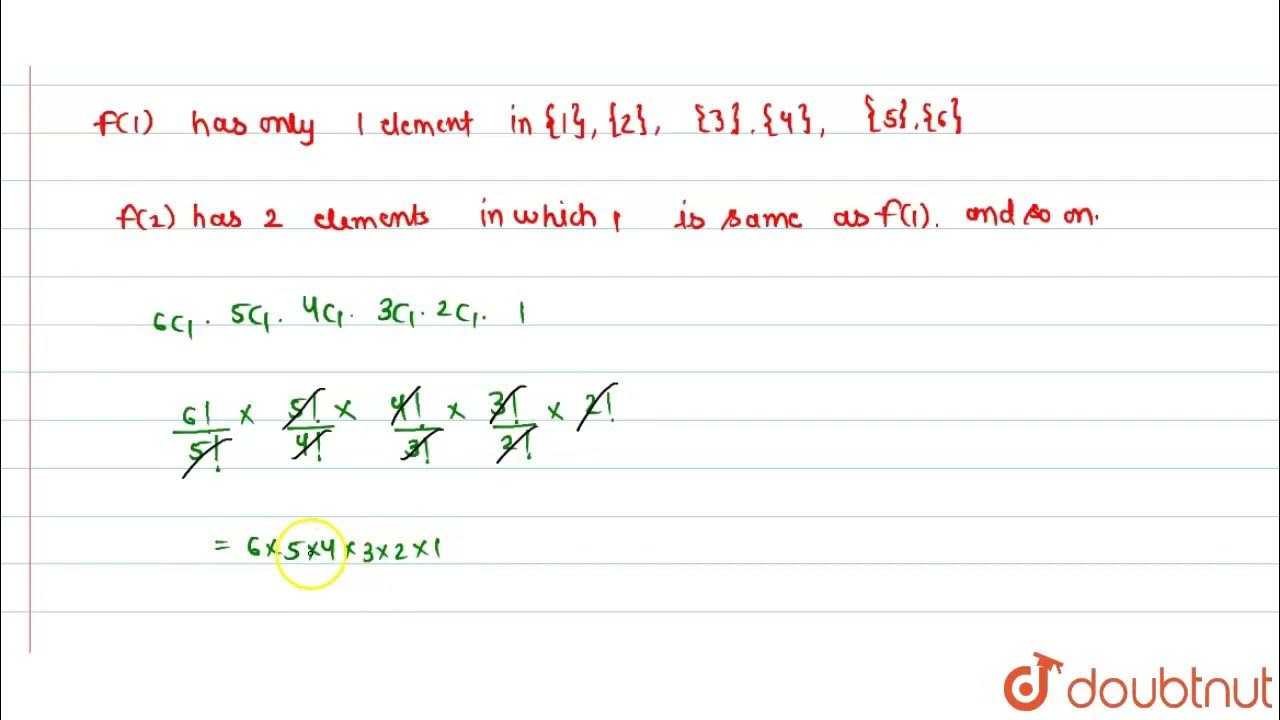 f(1) has only 1 element in {1}, {2}, {3}, {4}, {5}, {6}
f(2) has 2 elements in which 1 is same as f(1). and so on.
6C₁ · 5C₁ · 4C₁ · 3C₁ · 2C₁ · 1
6!/5! × 5!/4! × 4!/3! × 3!/2! × 2!
= 6×5×4×3×2×1
doubtnut